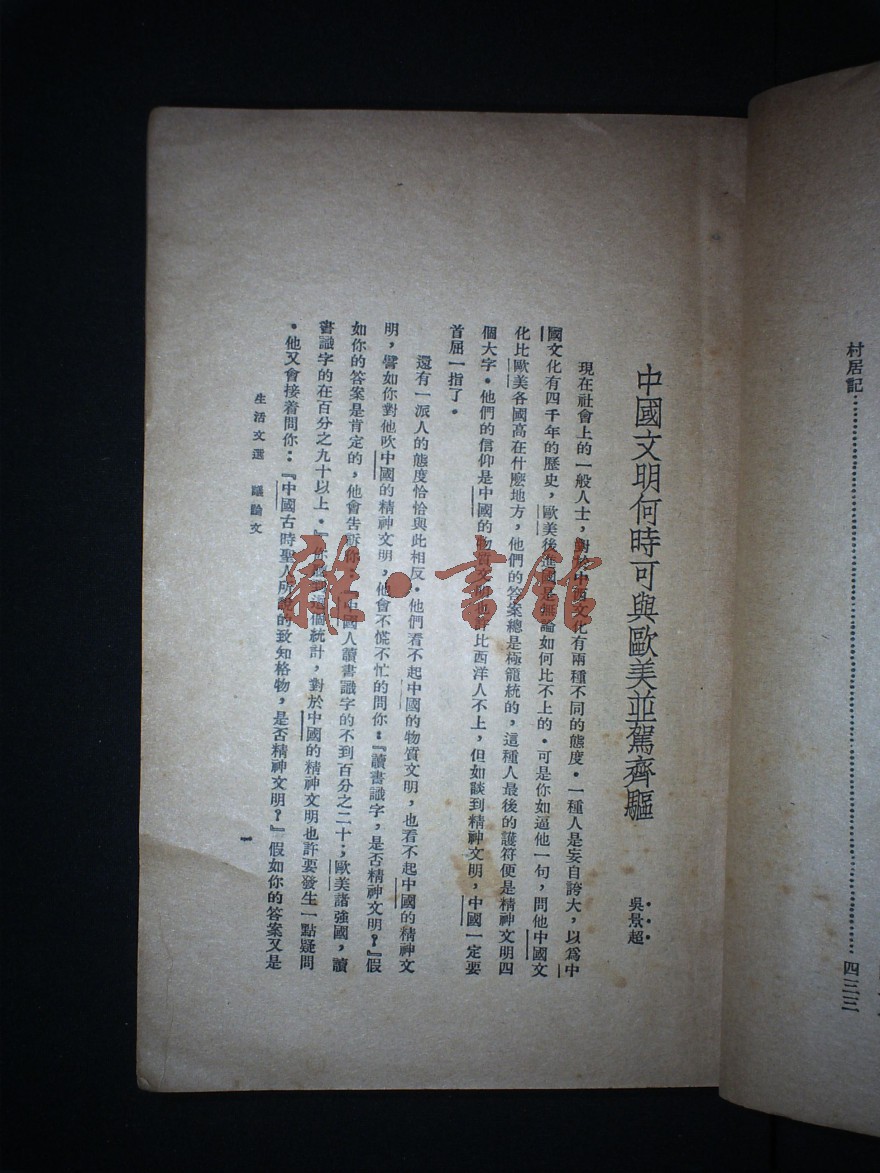 村居記⋯⋯⋯⋯⋯⋯⋯⋯⋯⋯四三三
中國文明何時可與歐美並駕齊驅
吳景超
現在社會上的一般人士,對於中西文化有兩種不同的態度。一種人是妄自誇大,以爲中
國文化有四千年的歷史,歐美後進國是無論如何比不上的。可是你如逼他一句,問他中國文
化比歐美各國高在什麽地方,他們的答案總是極籠統的,這種人最後的護符便是精神文明四
個大字。他們的信仰是中國的物質文明也許比西洋人不上,但如談到精神文明,中國一定要
首屈一指了。
還有一派人的態度恰恰與此相反。他們看不起中國的物質文明,也看不起中國的精神文
明,譬如你對他吹中國的精神文明,他會不慌不忙的問你:『讀書識字,是否精神文明?』假
如你的答案是肯定的,他會告訴你:『中國人讀書識字的不到百分之二十;歐美諸強國,讀
書識字的在百分之九十以上。』你 這個統計,對於中國的精神文明也許要發生一點疑問
。他又會接着問你:『中國古時聖人所說的致知格物,是否精神文明?』假如你的答案又是
生活文選 議論文
一
雜·書館